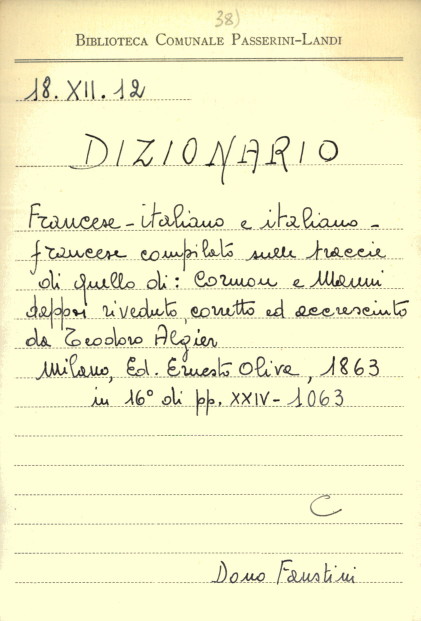 38)
BIBLIOTECA COMUNALE PASSERINI-LANDI
18.XII.12
DIZIONARIO
Francese-italiano e italiano-
francese compilato sulle traccie
di quello di: Cormon e Manni
deppoi riveduto, corretto ed accresciuto
da Teodoro Algier
Milano, Ed. Ernesto Oliva, 1863
in 16° di pp. XXIV-1063
C
Dono Faustini